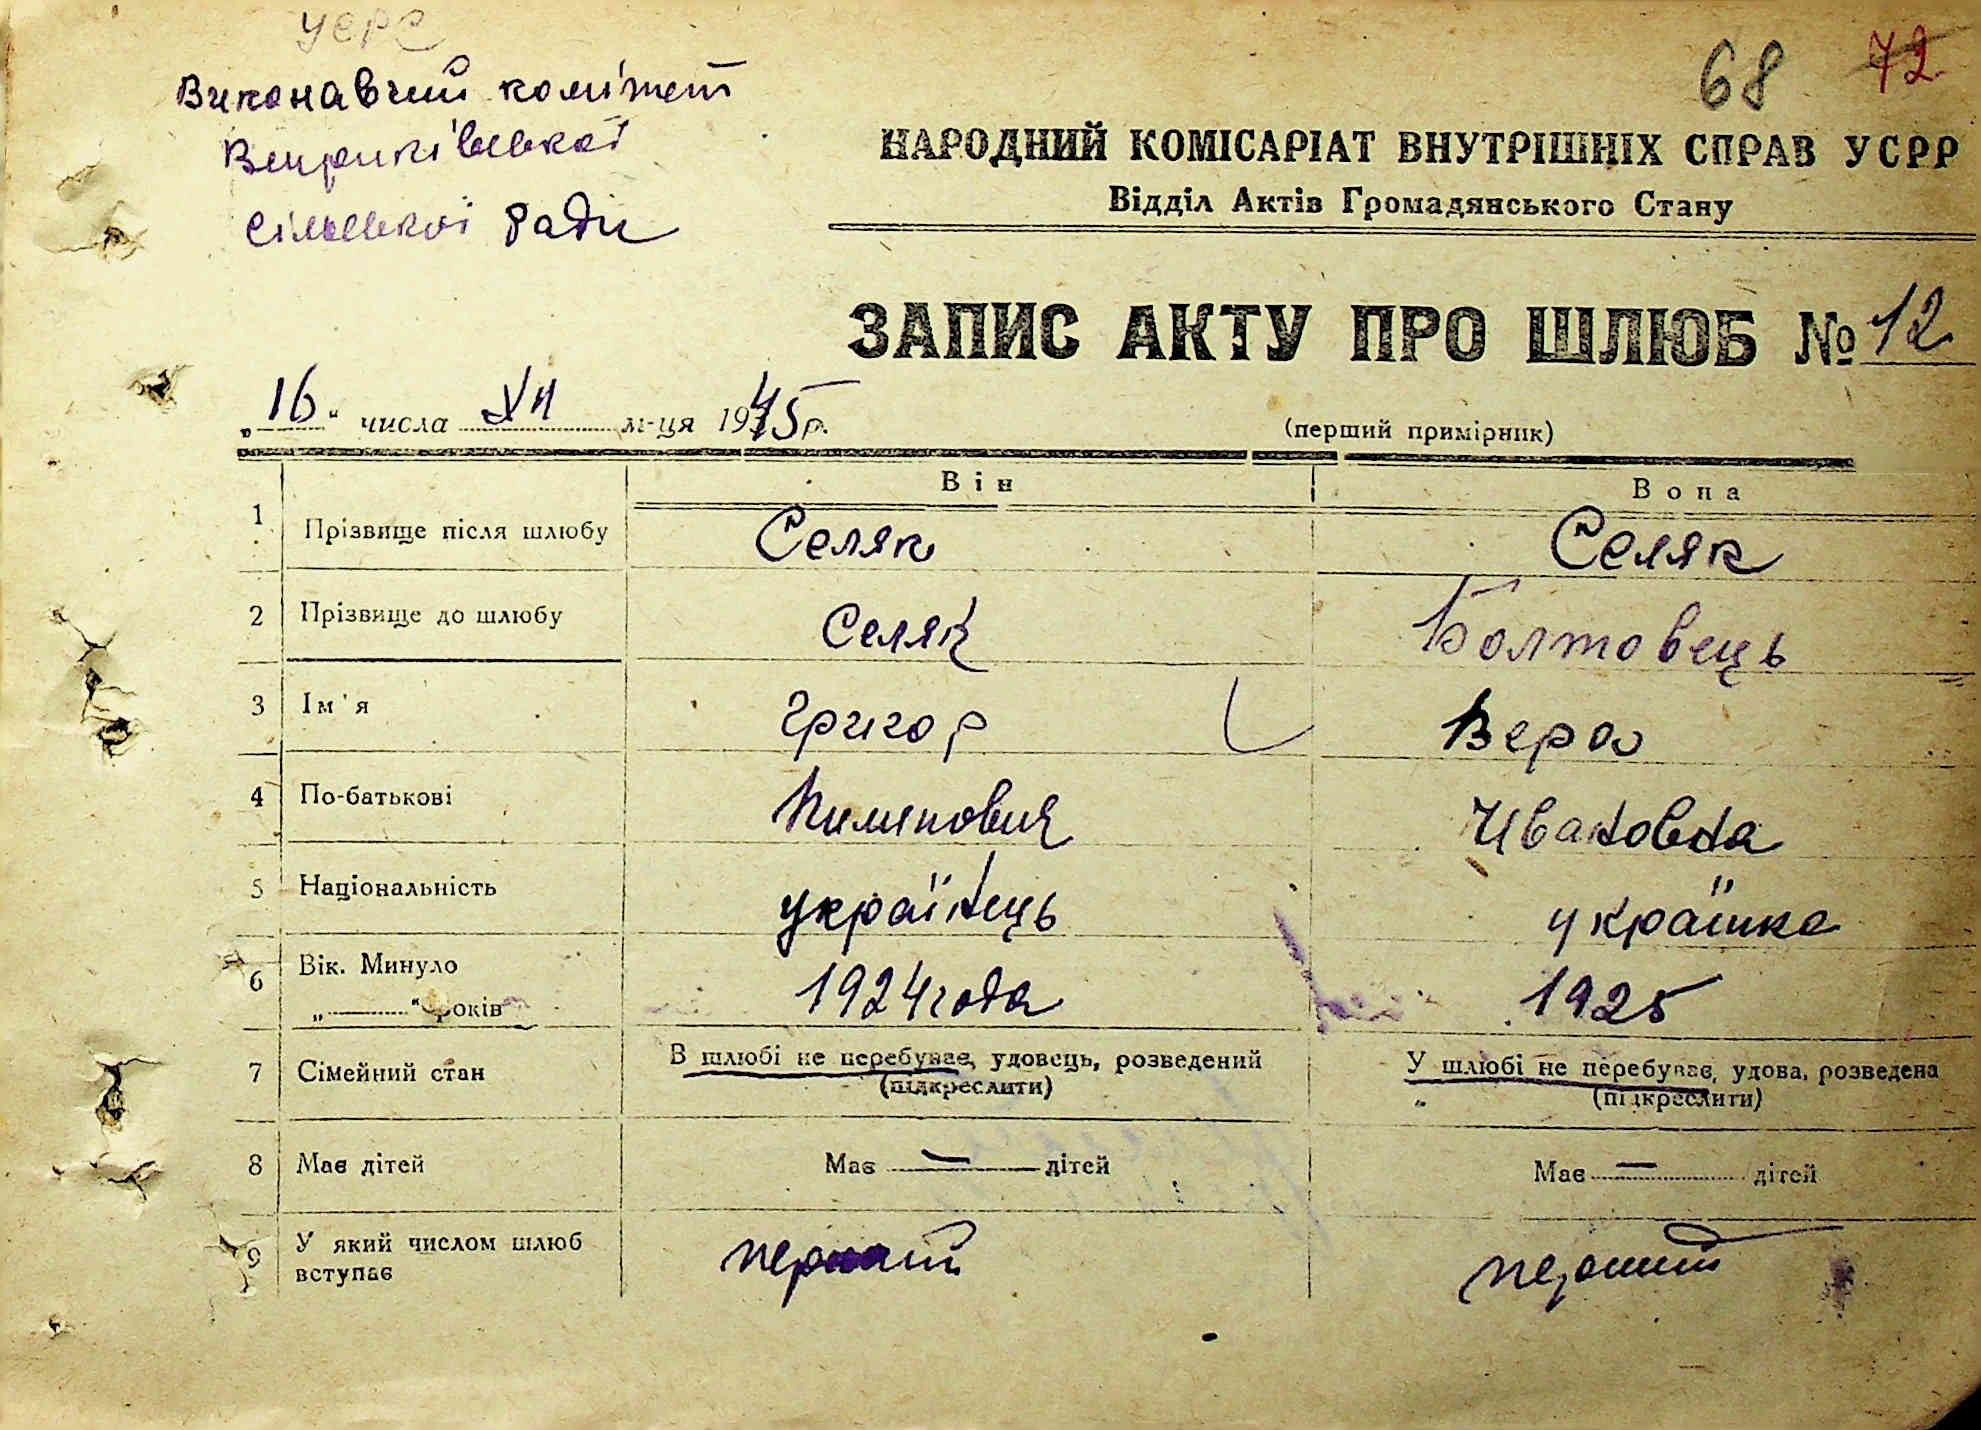 УСРС
Виконавчий комітет
сільської Ради
68 72
НАРОДНИЙ КОМІСАРІАТ ВНУТРІШНІХ СПРАВ УСРР
Відділ Актів Громадянського Стану
ЗАПИС АКТУ ПРО ШЛЮБ № 12
„16“ числа XII м-ця 1945 р.
(перший примірник)
Він Вона
1 Прізвище після шлюбу Селяк Селяк
2 Прізвище до шлюбу Селяк Болтовець
3 Ім'я Григор Вера
4 По-батькові Пилипович Ивановна
5 Національність українець українка
6 Вік. Минуло 1924 года 1925
„ “ років
7 Сімейний стан В шлюбі не перебуває, удовець, розведений У шлюбі не перебуває, удова, розведена
(підкреслити) (підкреслити)
8 Має дітей Має — дітей Має — дітей
9 У який числом шлюб вступає перший перший